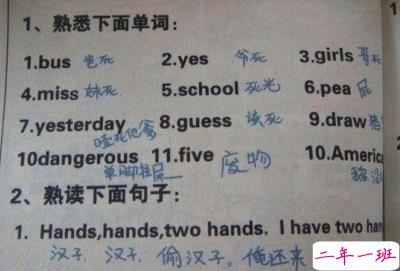 1、熟悉下面单词：
1.bus 爸死 2.yes 爷死 3.girls 哥死
4.miss 妹死 5.school 死光 6.pea 屁
7.yesterday 8.guess 该死 9.draw
10dangerous 11.five 废物 10.Americ
单脚拉屎
2、熟读下面句子：
1. Hands,hands,two hands. I have two han
汉子，汉子，偷汉子。俺还来
二年一班